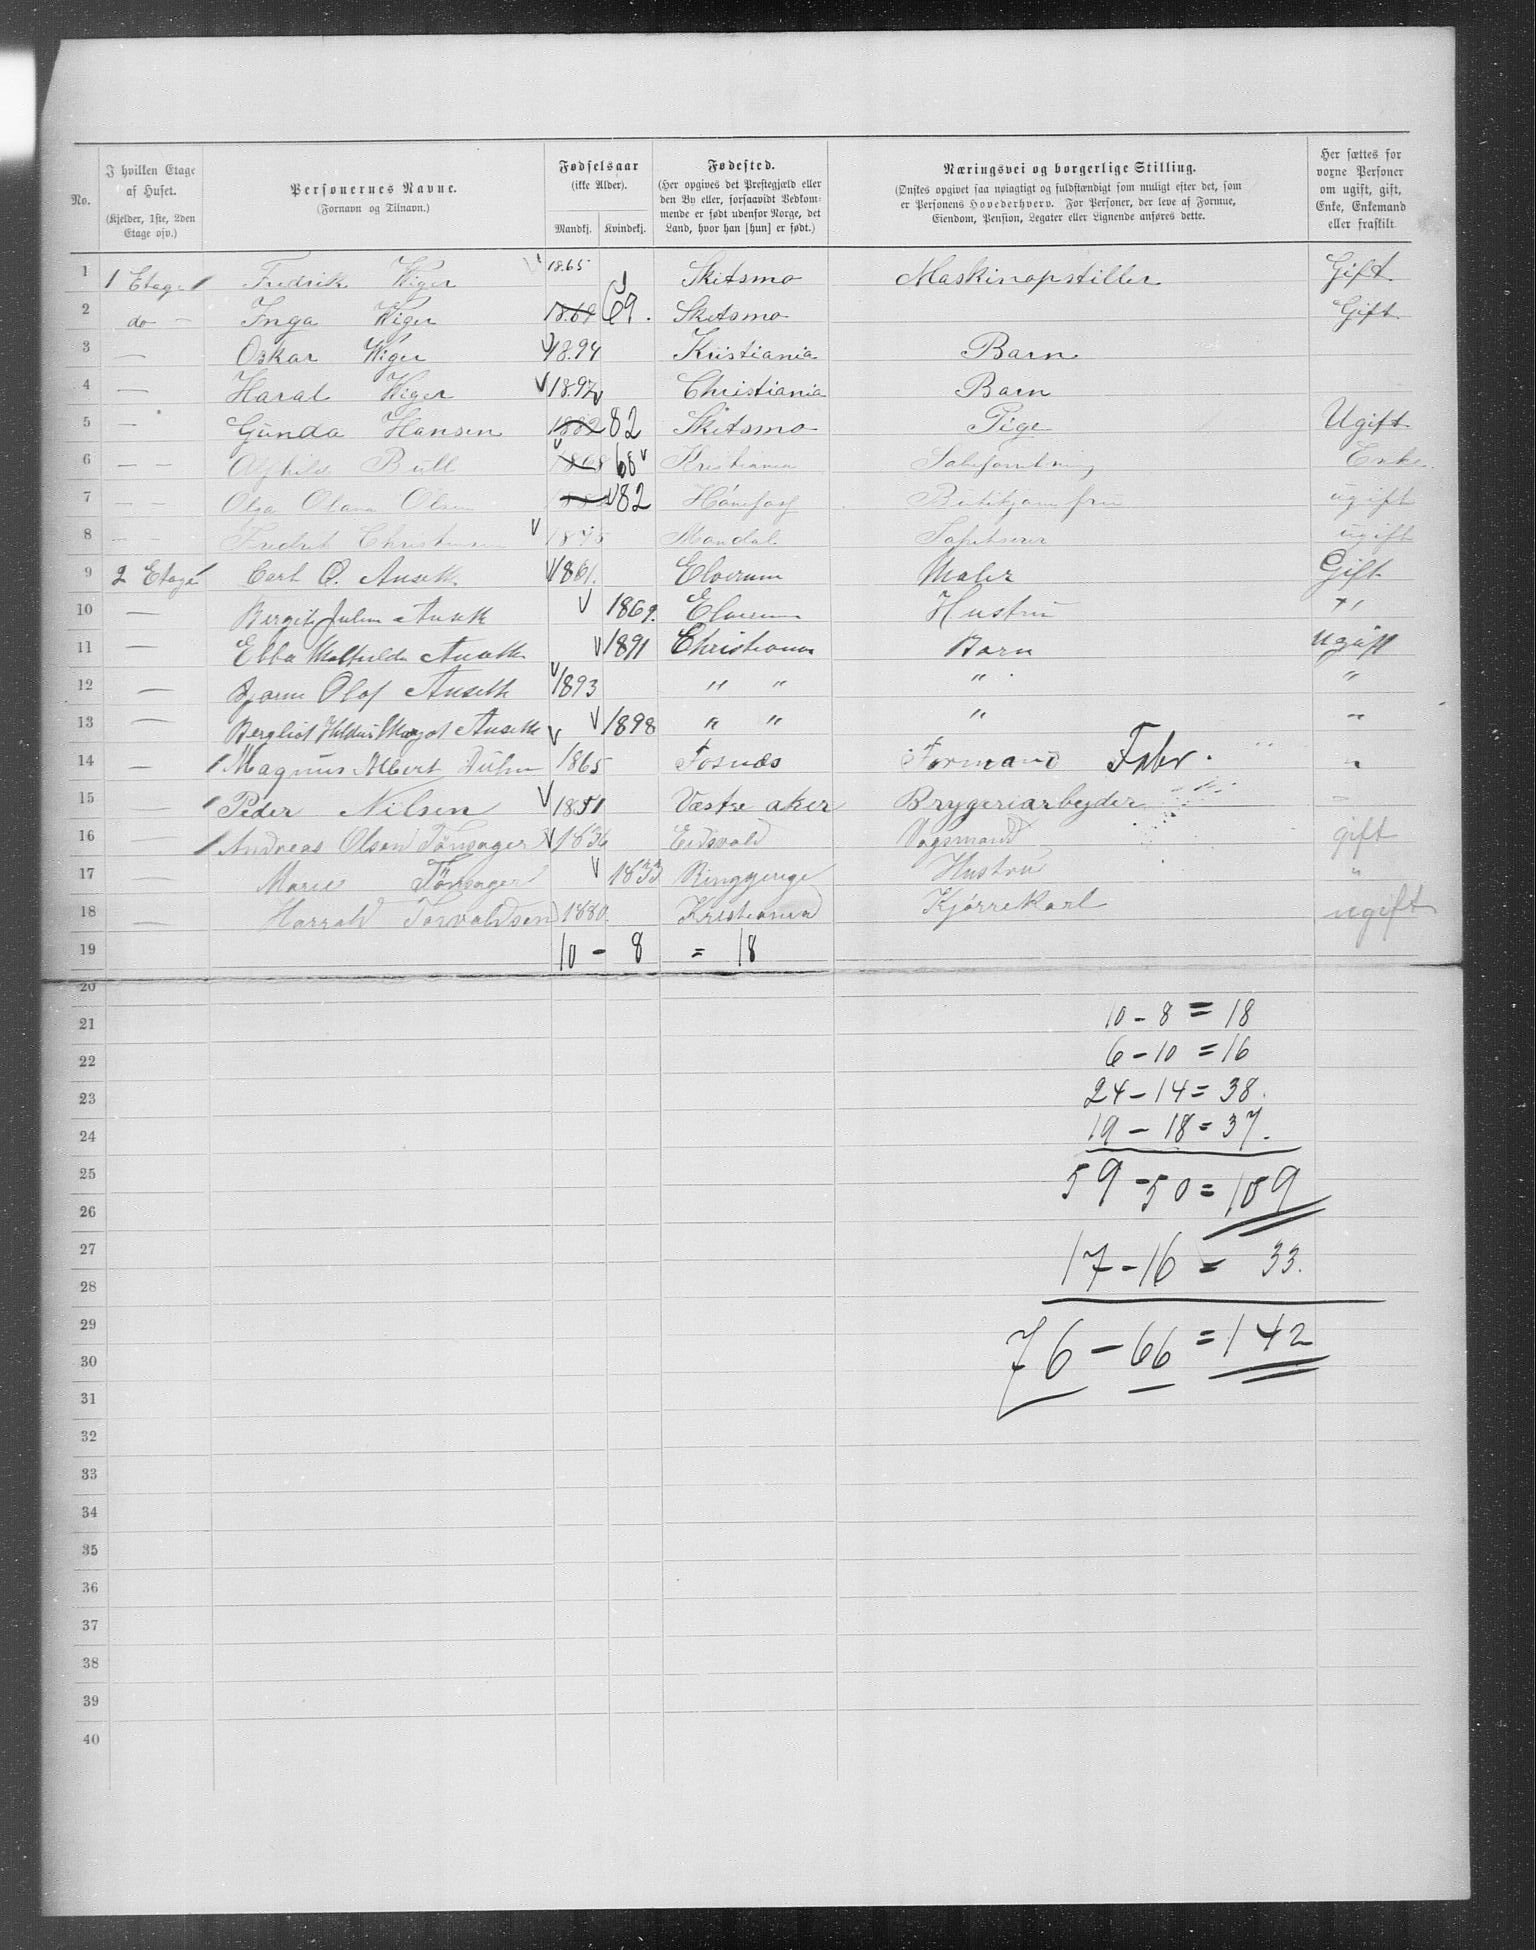 No.
I hvilken Etage af Huset.
(Kjelder, 1ste, 2den Etage osv.)
Personernes Navne.
(Fornavn og Tilnavn.)
Fødselsaar
(ikke Alder).
Mandkj. Kvindekj.
Fødested.
(Her opgives det Prestegjæld eller den By eller, forsaavidt Bedkommende er født udenfor Norge, det Land, hvor han [hun] er født.)
Næringsvei og borgerlige Stilling.
(Ønskes opgivet saa nøiagtigt og fuldstændigt som muligt efter det, som er Personens Hovederhverv. For Personer, der leve af Formue, Eiendom, Pension, Legater eller Lignende anføres dette.
Her sættes for voxne Personer om ugift, gift, Enke, Enkemand eller fraskilt.
1 1 Etage Fredrik Wiger 1865 Skitsmo Maskinopstiller Gift
2 do - Inga Wiger 1869 69. Skitsmo Gift
3 — Oskar Wiger 1894 Kristiania Barn
4 — Haral Wiger 1897 Christiania Barn
5 — Gunda Hansen 1882 82 Skitsmo Pige Ugift
6 — — Bull 1868 68 Kristiania Enke
7 — — Olga Olava Olsen 82 Hønefos ugift
8 — — Fredrik 1875 Mandal ugift
9 2 Etage Carl O. Anseth 1861. Elverum Maler Gift
10 — Anseth 1869. Elverum Hustru "
11 — Ebba Mathilde Anseth 1891 Christiania Barn Ugift
12 — Bjarne Olof Anseth 1893 " " " "
13 — Bergliot Anseth 1898 " " " "
14 — Magnus Albert 1865 Fosnæs Formand Fabr. "
15 — Peder Nilsen 1851 Vestre aker Bryggeriarbejder —
16 — Andreas Olsen Tönsager 1836 Eidsvold Vognmand gift
17 — Marie Tönsager 1833 Ringgerige Hustru "
18 — Harrald Torvaldsen 1880. Kristiania Kjørrekarl ugift
19 10 - 8 = 18
20
21 10 - 8 = 18
22 6 - 10 = 16
23 24 - 14 = 38.
24 19 - 18 = 37.
25 59 - 50 = 109
26
27 17 - 16 = 33.
28
29 76 - 66 = 142
30
31
32
33
34
35
36
37
38
39
40